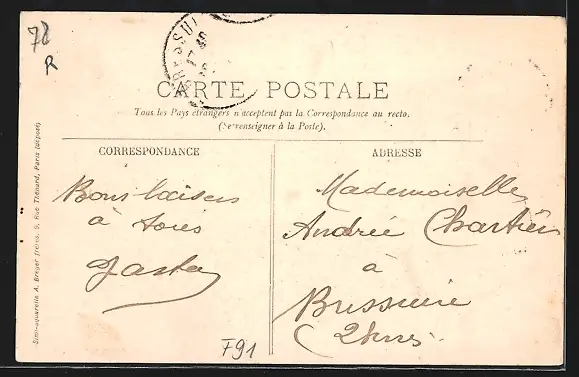 78
R
CARTE POSTALE
Tous les Pays étrangers n'acceptent pas la Correspondance au recto.
(Se renseigner à la Poste).
CORRESPONDANCE
Bons baisers
à
ADRESSE
Mademoiselle
Andrée Chartier
à
Bressuire
2 Sèvres
F91
Simi-aquarelle A. Breger frères, 9, Rue Thénard, Paris (déposé)